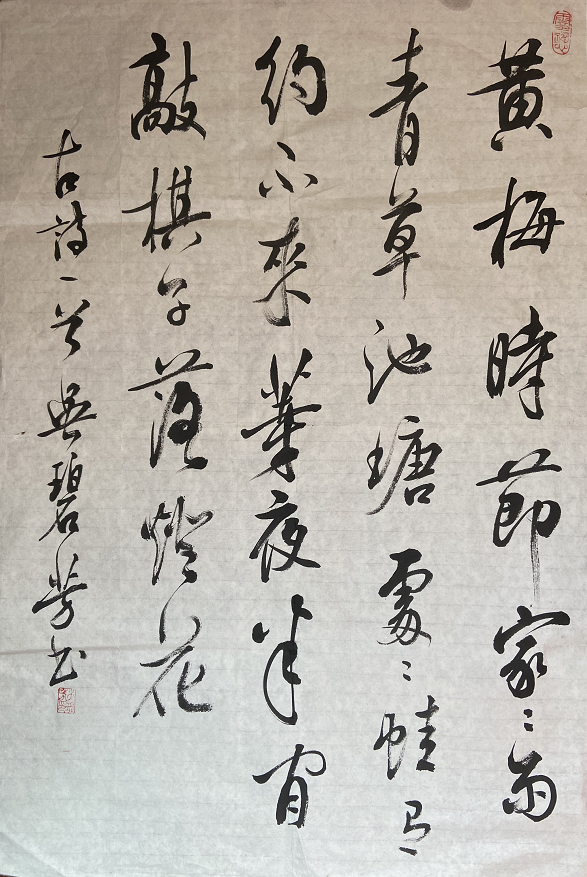 黄梅時節家々雨
青草池塘處々蛙有
約不來華夜半閒
敲棋子落燈花
古詩一首 吳碧芳书